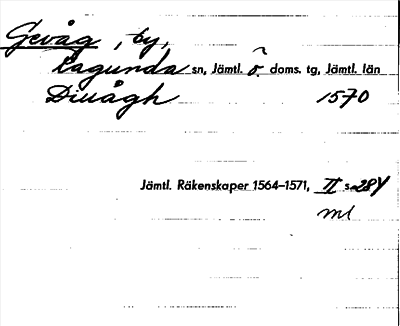 Gevåg, by,
Ragunda sn, Jämtl. ö. doms. tg, Jämtl. län
Diuågh 1570
Jämtl. Räkenskaper 1564–1571, II s. 284
ml